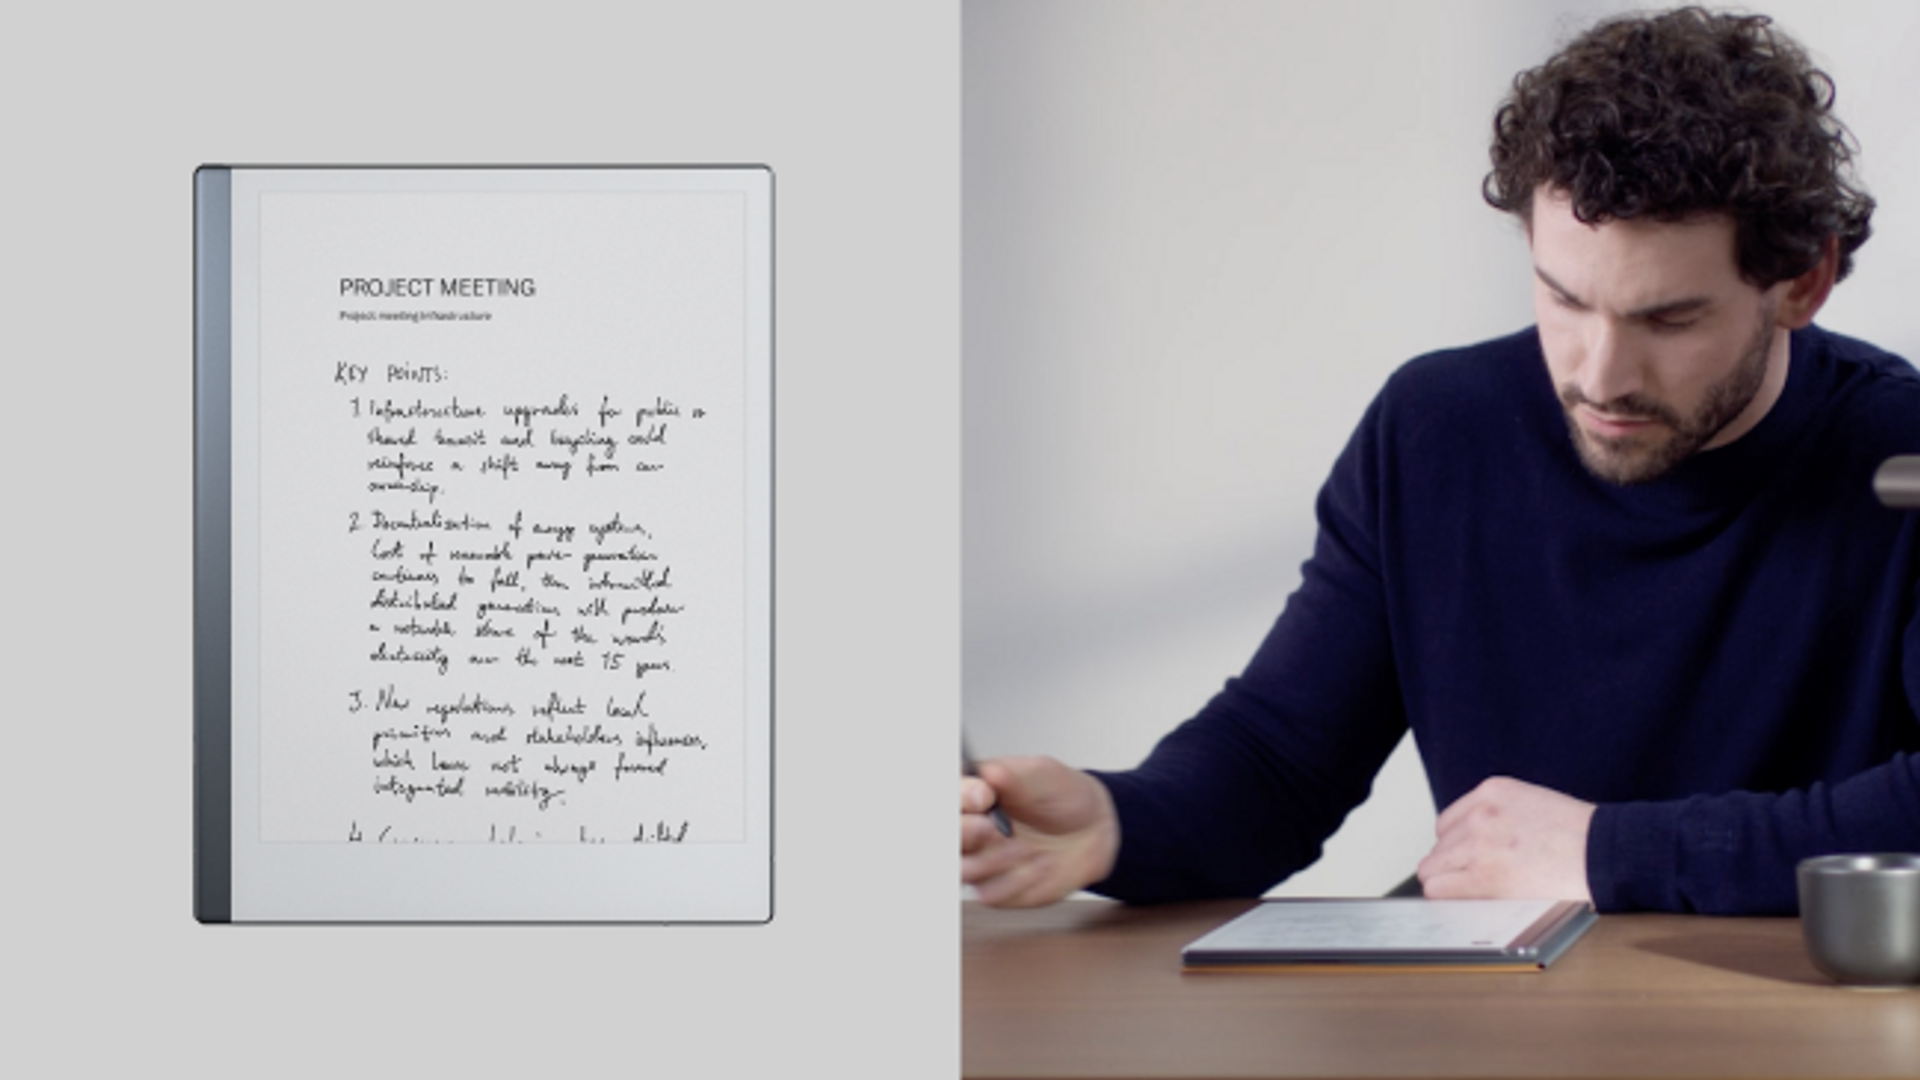 PROJECT MEETING
Project meeting infrastructure
KEY POINTS:
1. Infrastructure upgrades for public or
shared transit and bicycling could
reinforce a shift away from car
ownership.
2. Decentralization of energy systems,
Cost of renewable power generation
continues to fall, then intermitted
distributed generation will produce
a notable share of the world's
electricity over the next 15 years.
3. New regulations reflect local
priorities and stakeholders influences,
which have not always favored
integrated mobility.
4.